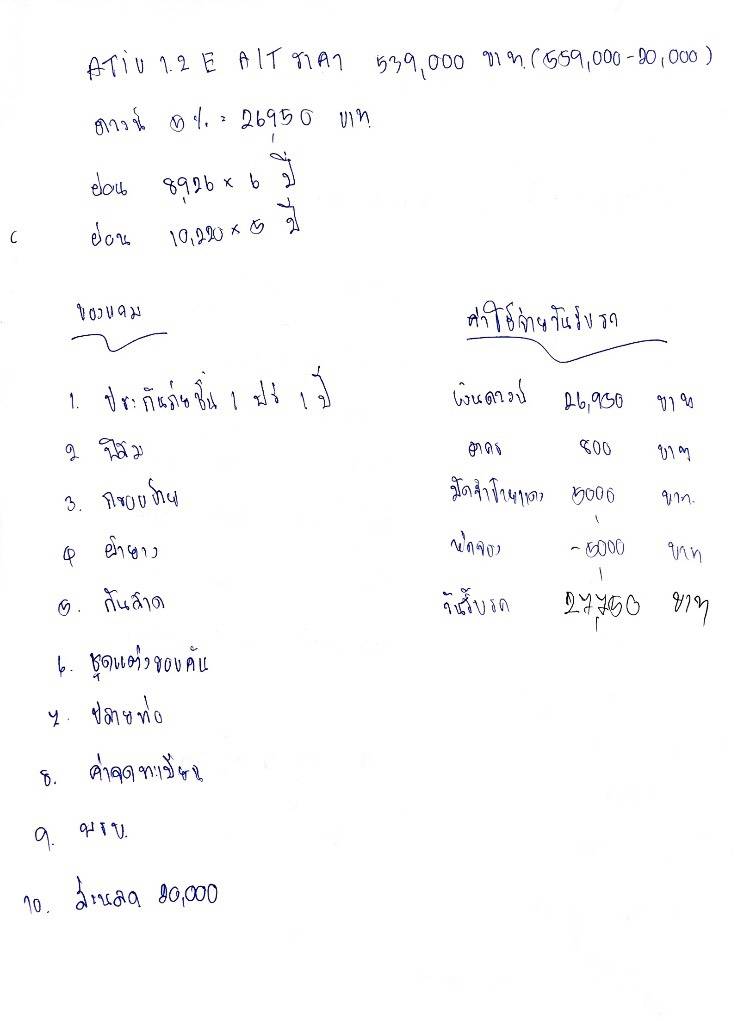 ATIV 1.2 E A/T ราคา 539,000 บาท (559,000-20,000)
ดาวน์ 5% = 26,950 บาท
ผ่อน 8,926 x 6 ปี
ผ่อน 10,220 x 5 ปี
ของแถม
1. ประกันภัยชั้น 1 ฟรี 1 ปี
2 ฟิล์ม
3. กรอบป้าย
4 ผ้ายาง
5. กันสาด
6. ชุดแต่งรอบคัน
7. ปลายท่อ
8. ค่าจดทะเบียน
9. พรบ.
10. ส่วนลด 20,000
ค่าใช้จ่ายวันรับรถ
เงินดาวน์ 26,950 บาท
อากร 800 บาท
มัดจำป้ายแดง 5,000 บาท.
หักจอง -5,000 บาท
วันรับรถ 27,750 บาท